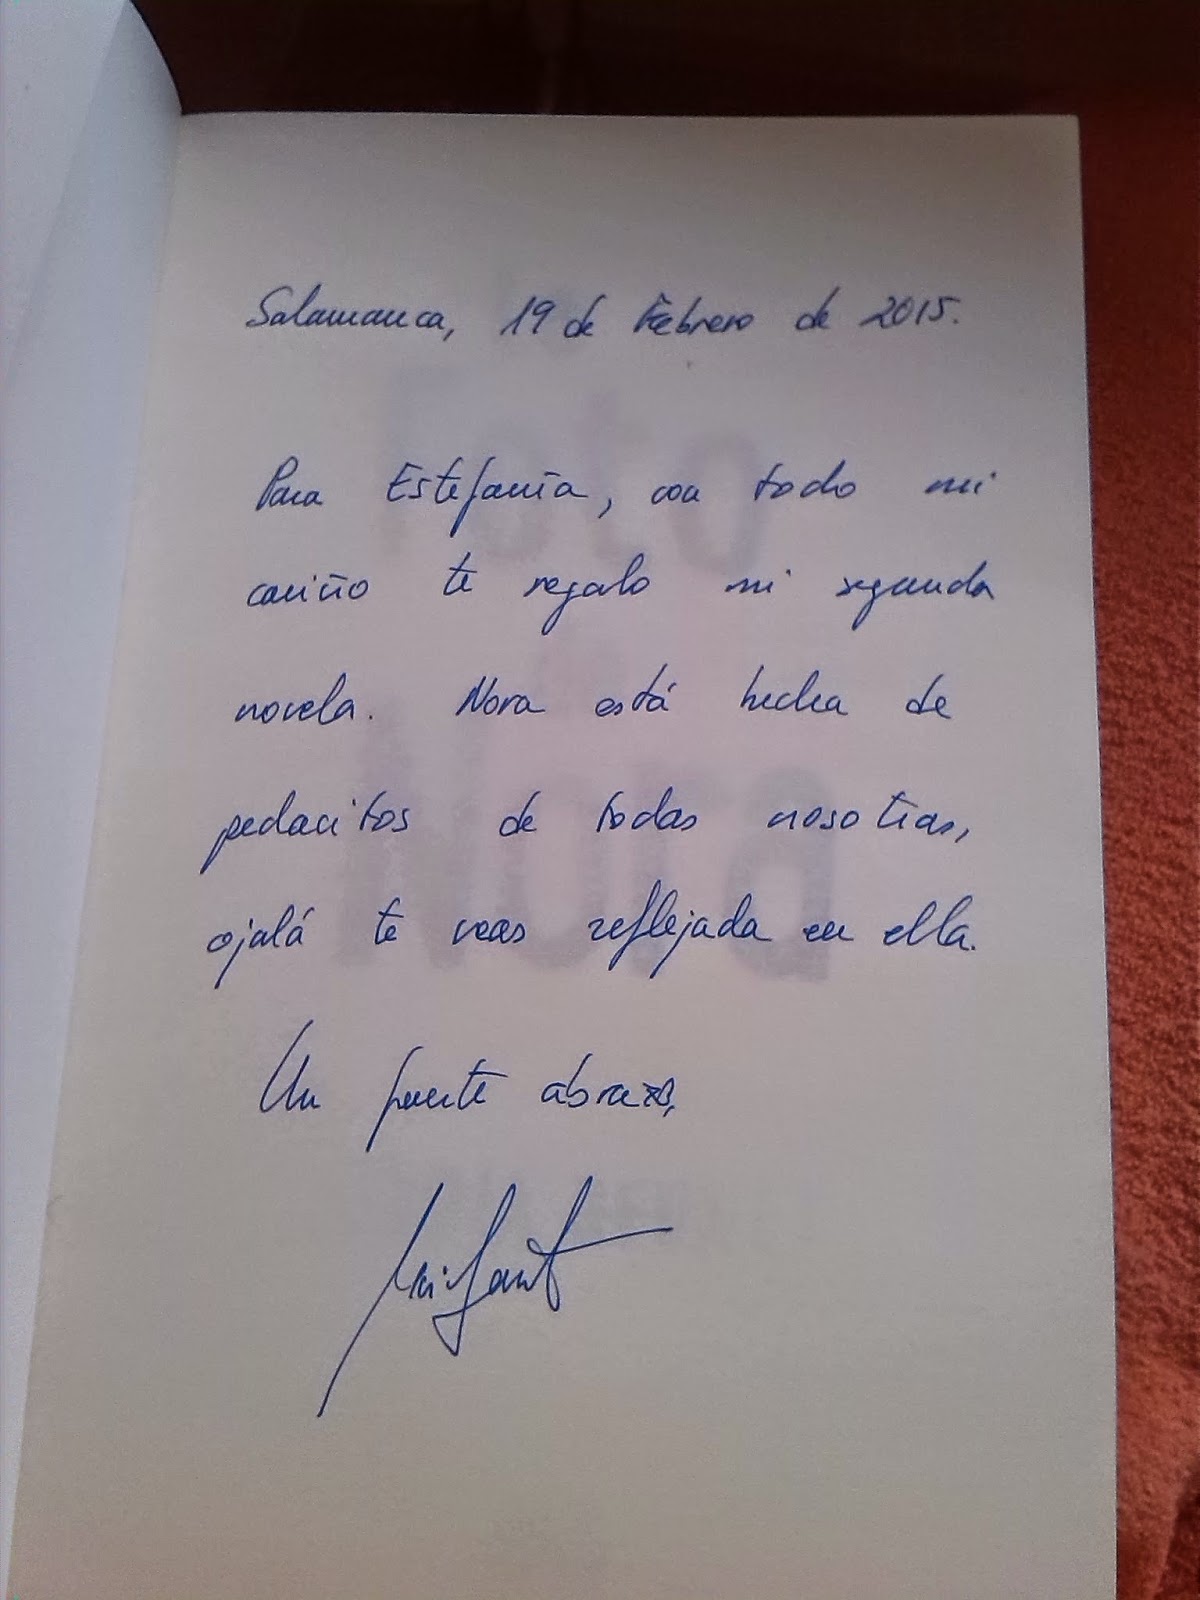 Salamanca, 19 de Febrero de 2015.
Para Estefanía, con todo mi
cariño te regalo mi segunda
novela. Nora está hecha de
pedacitos de todas nosotras,
ojalá te veas reflejada en ella.
Un fuerte abrazo,